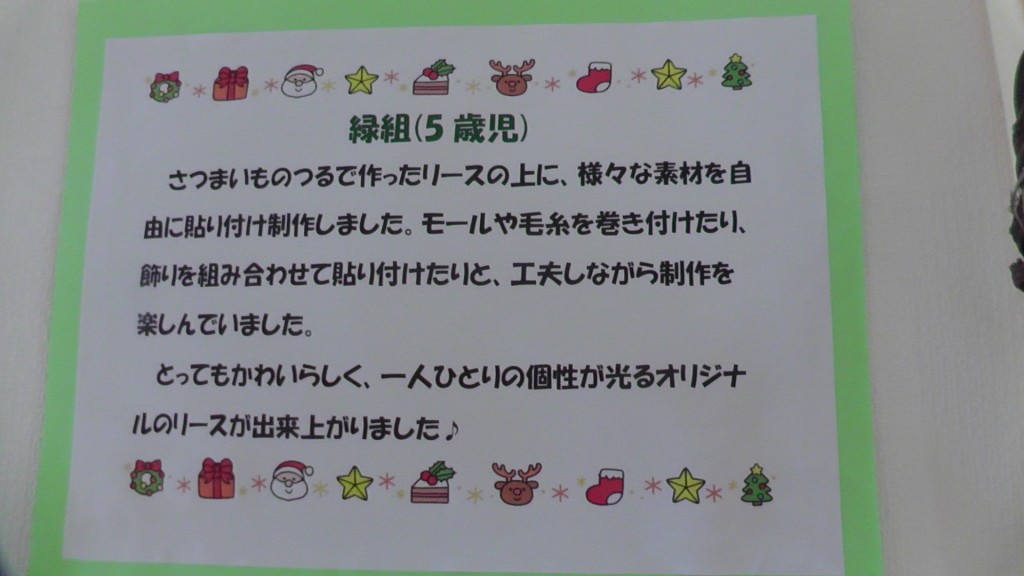 緑組(5歳児)
さつまいものつるで作ったリースの上に、様々な素材を自
由に貼り付け制作しました。モールや毛糸を巻き付けたり、
飾りを組み合わせて貼り付けたりと、工夫しながら制作を
楽しんでいました。
とってもかわいらしく、一人ひとりの個性が光るオリジナ
ルのリースが出来上がりました♪